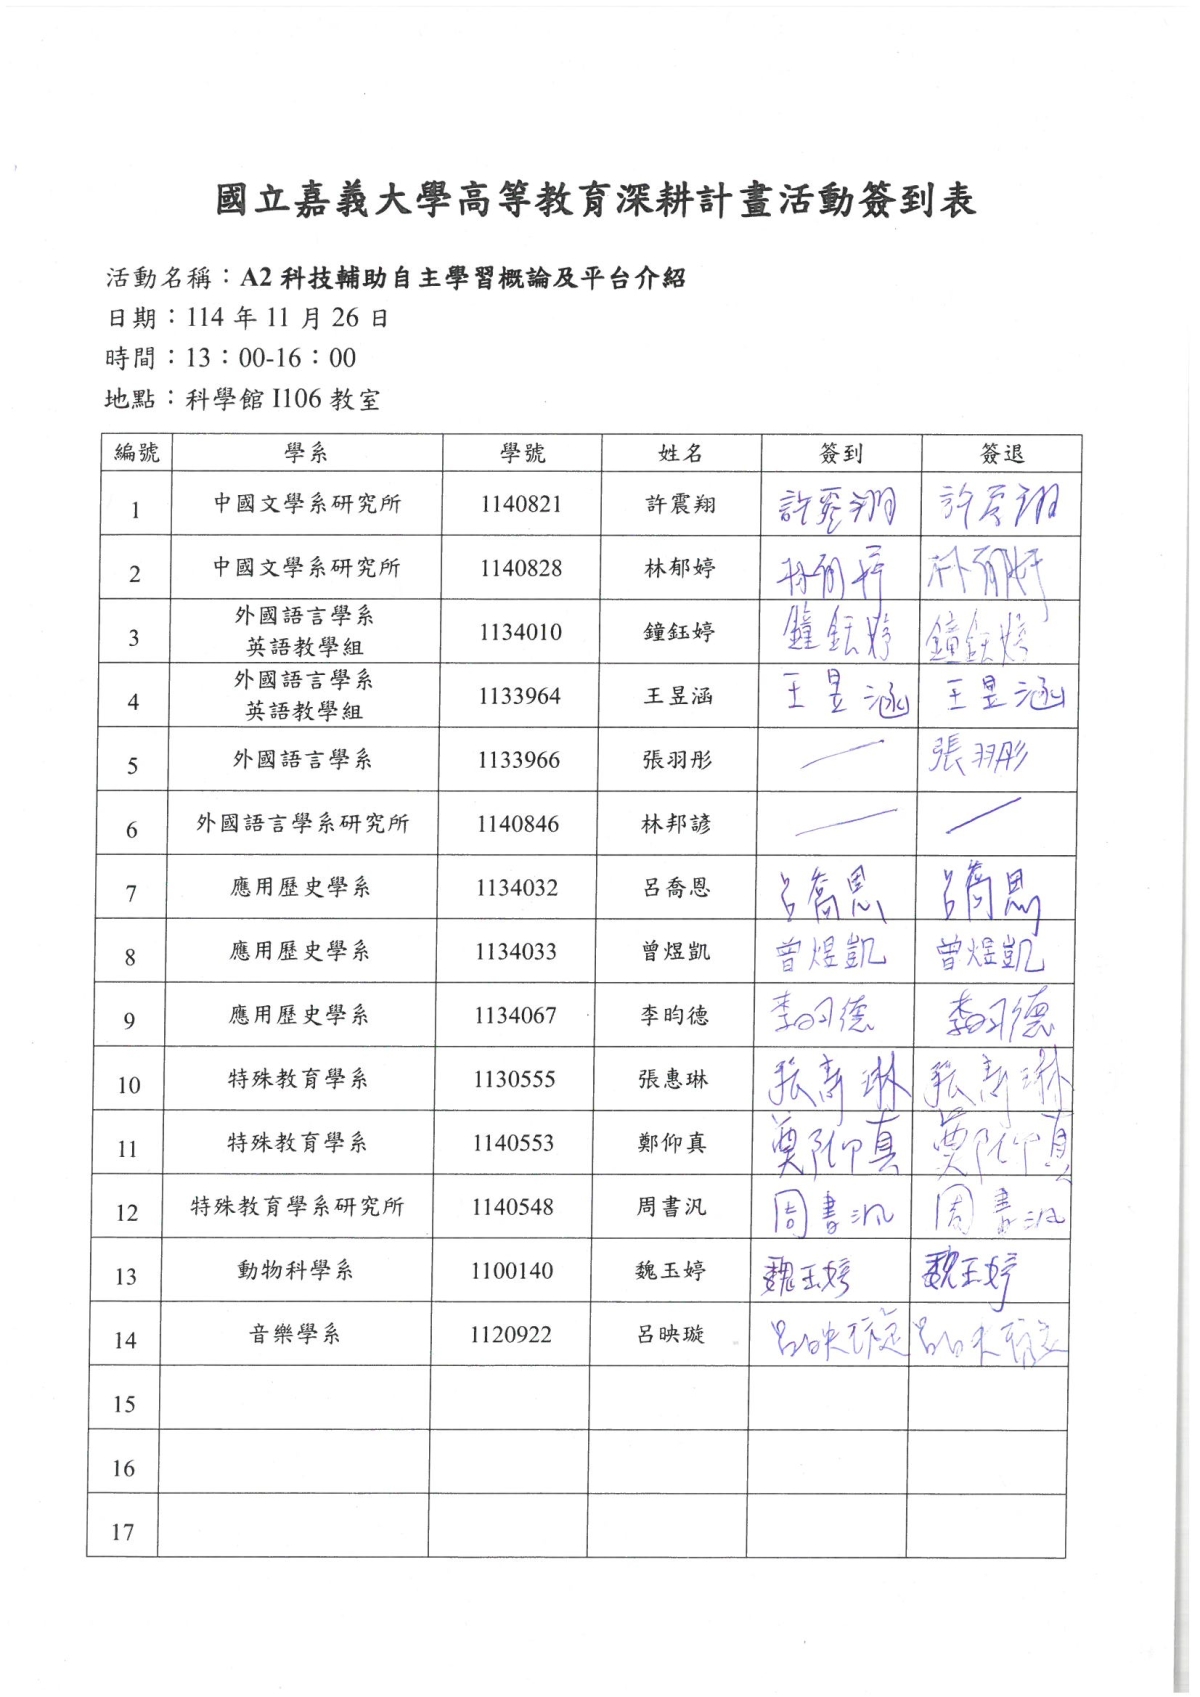 國立嘉義大學高等教育深耕計畫活動簽到表
活動名稱：A2 科技輔助自主學習概論及平台介紹
日期：114 年 11 月 26 日
時間：13：00-16：00
地點：科學館 I106 教室
編號 學系 學號 姓名 簽到 簽退
1 中國文學系研究所 1140821 許震翔 許震翔 許震翔
2 中國文學系研究所 1140828 林郁婷 林郁婷 林郁婷
3 外國語言學系 英語教學組 1134010 鐘鈺婷 鐘鈺婷 鐘鈺婷
4 外國語言學系 英語教學組 1133964 王昱涵 王昱涵 王昱涵
5 外國語言學系 1133966 張羽彤 — 張羽彤
6 外國語言學系研究所 1140846 林邦諺 — —
7 應用歷史學系 1134032 呂喬恩 呂喬恩 呂喬恩
8 應用歷史學系 1134033 曾煜凱 曾煜凱 曾煜凱
9 應用歷史學系 1134067 李昀德 李昀德 李昀德
10 特殊教育學系 1130555 張惠琳 張惠琳 張惠琳
11 特殊教育學系 1140553 鄭仰真 鄭仰真 鄭仰真
12 特殊教育學系研究所 1140548 周書汎 周書汎 周書汎
13 動物科學系 1100140 魏玉婷 魏玉婷 魏玉婷
14 音樂學系 1120922 呂映璇 呂映璇 呂映璇
15
16
17